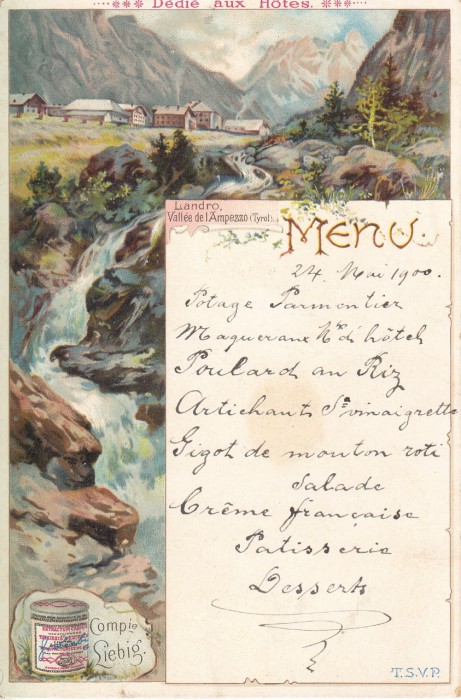 Dédié aux Hôtes.
Landro,
Vallée de l'Ampezzo (Tyrol).
Menu
24 Mai 1900.
Potage Parmontier
Maqueraux Mtre d'hôtel
Poulard au Riz
Artichauts Sce vinaigrette
Gigot de mouton roti
Salade
Crême française
Patisserie
Desserts
Compie
Liebig.
T.S.V.P.